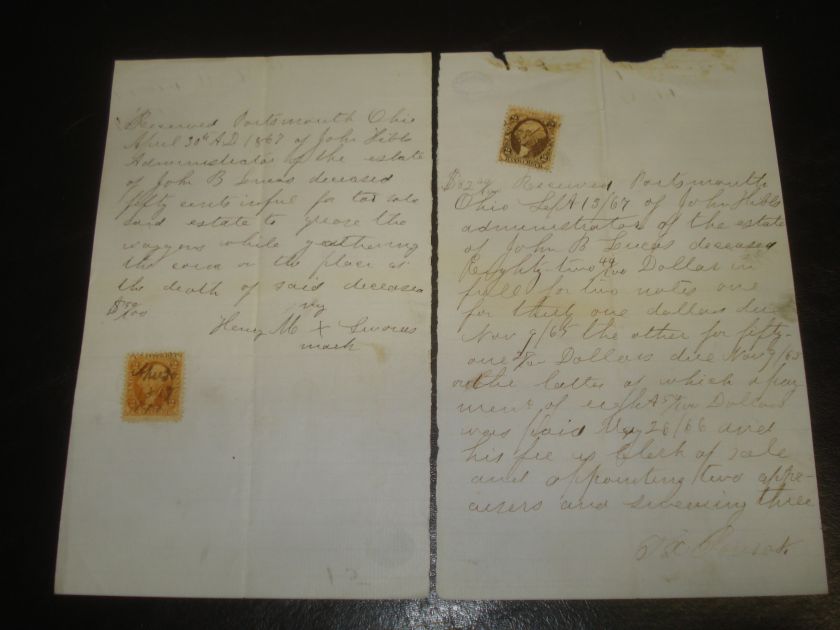 Received Portsmouth Ohio
April 30th A.D 1867 of John Hibbs
Administrator of the estate
of John B Lucas deceased
fifty cents in full for tar sold
said estate to grease the
waggons while gathering
the corn on the place at
the death of said deceased
$ 50/100
my
Henry M X
mark
$82 44/100 Received Portsmouth
Ohio Sept 13/67 of John Hibbs
administrator of the estate
of John B Lucas deceased
Eighty two 44/100 Dollars in
full for two notes one
for thirty one dollars due
Nov 9/65 the other for fifty-
one Dollars due Nov 9/65
on the latter of which a pay
ment of eight Dollars
was paid May 26/66 and
his fee as Clerk of sale
and appointing two appra-
aisers and swearing three
2
2